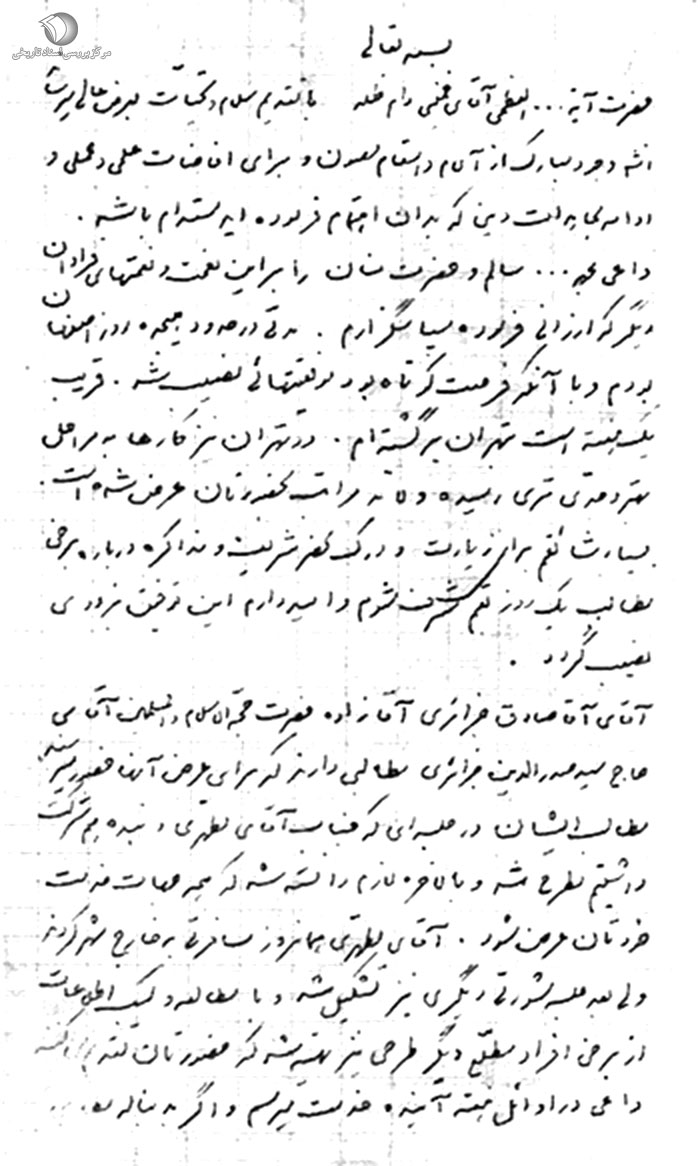 مرکز بررسی اسناد تاریخی
بسمه تعالی
حضرت آیة ... العظمی آقای خمینی دام ظله با تقدیم سلام و تحیات بعرض عالی میرساند
انشه وجود مبارک از آلام و اسقام مصون و برای افاضات علمی و عملی و
ادامه مجاهدات دینی که بدان اهتمام فرموده اید مستدام باشد .
داعی بحمد ... سالم و حضرت منان را بر این نعمت و نعمتهای فراوان
دیگر که ارزانی فرموده سپاسگزارم . مدتی در حدود هیجده روز اصفهان
بودم و با آنکه فرصت کوتاه بود موفقیتهائی نصیب شد . قریب
یک هفته است بتهران برگشته ام . در تهران نیز کارها به مراحل
بهتر و جدی تری رسیده و لابد مراتب بحضورتان عرض شده است .
بسیار شائقم برای زیارت و درک محضر شریف و مذاکره درباره برخی
مطالب یک روز بقم مشرف شوم و امیدوارم این توفیق بزودی
نصیب گردد .
آقای آقا صادق جزائری آقازاده حضرت حجة الاسلام و المسلمین آقای
حاج سید صدرالدین جزائری مطالبی دارند که برای عرض آنها بحضور میرسند
مطالب ایشان در جلسه ای که جناب آقای مطهری و بنده هم شرکت
داشتیم مطرح شد و بالاخره لازم دانسته شد که همه جهات خدمت
خودتان عرض شود . آقای مطهری همانروز مسافرتی به خارج شهر کردند
ولی بعد جلسه مشورتی دیگری نیز تشکیل شد و با مطالعه و کسب اطلاعات
از برخی افراد مطلع دیگر طرحی نیز تهیه شد که حضورتان تقدیم میکنند
داعی در اوائل هفته آینده خدمت میرسم و اگر